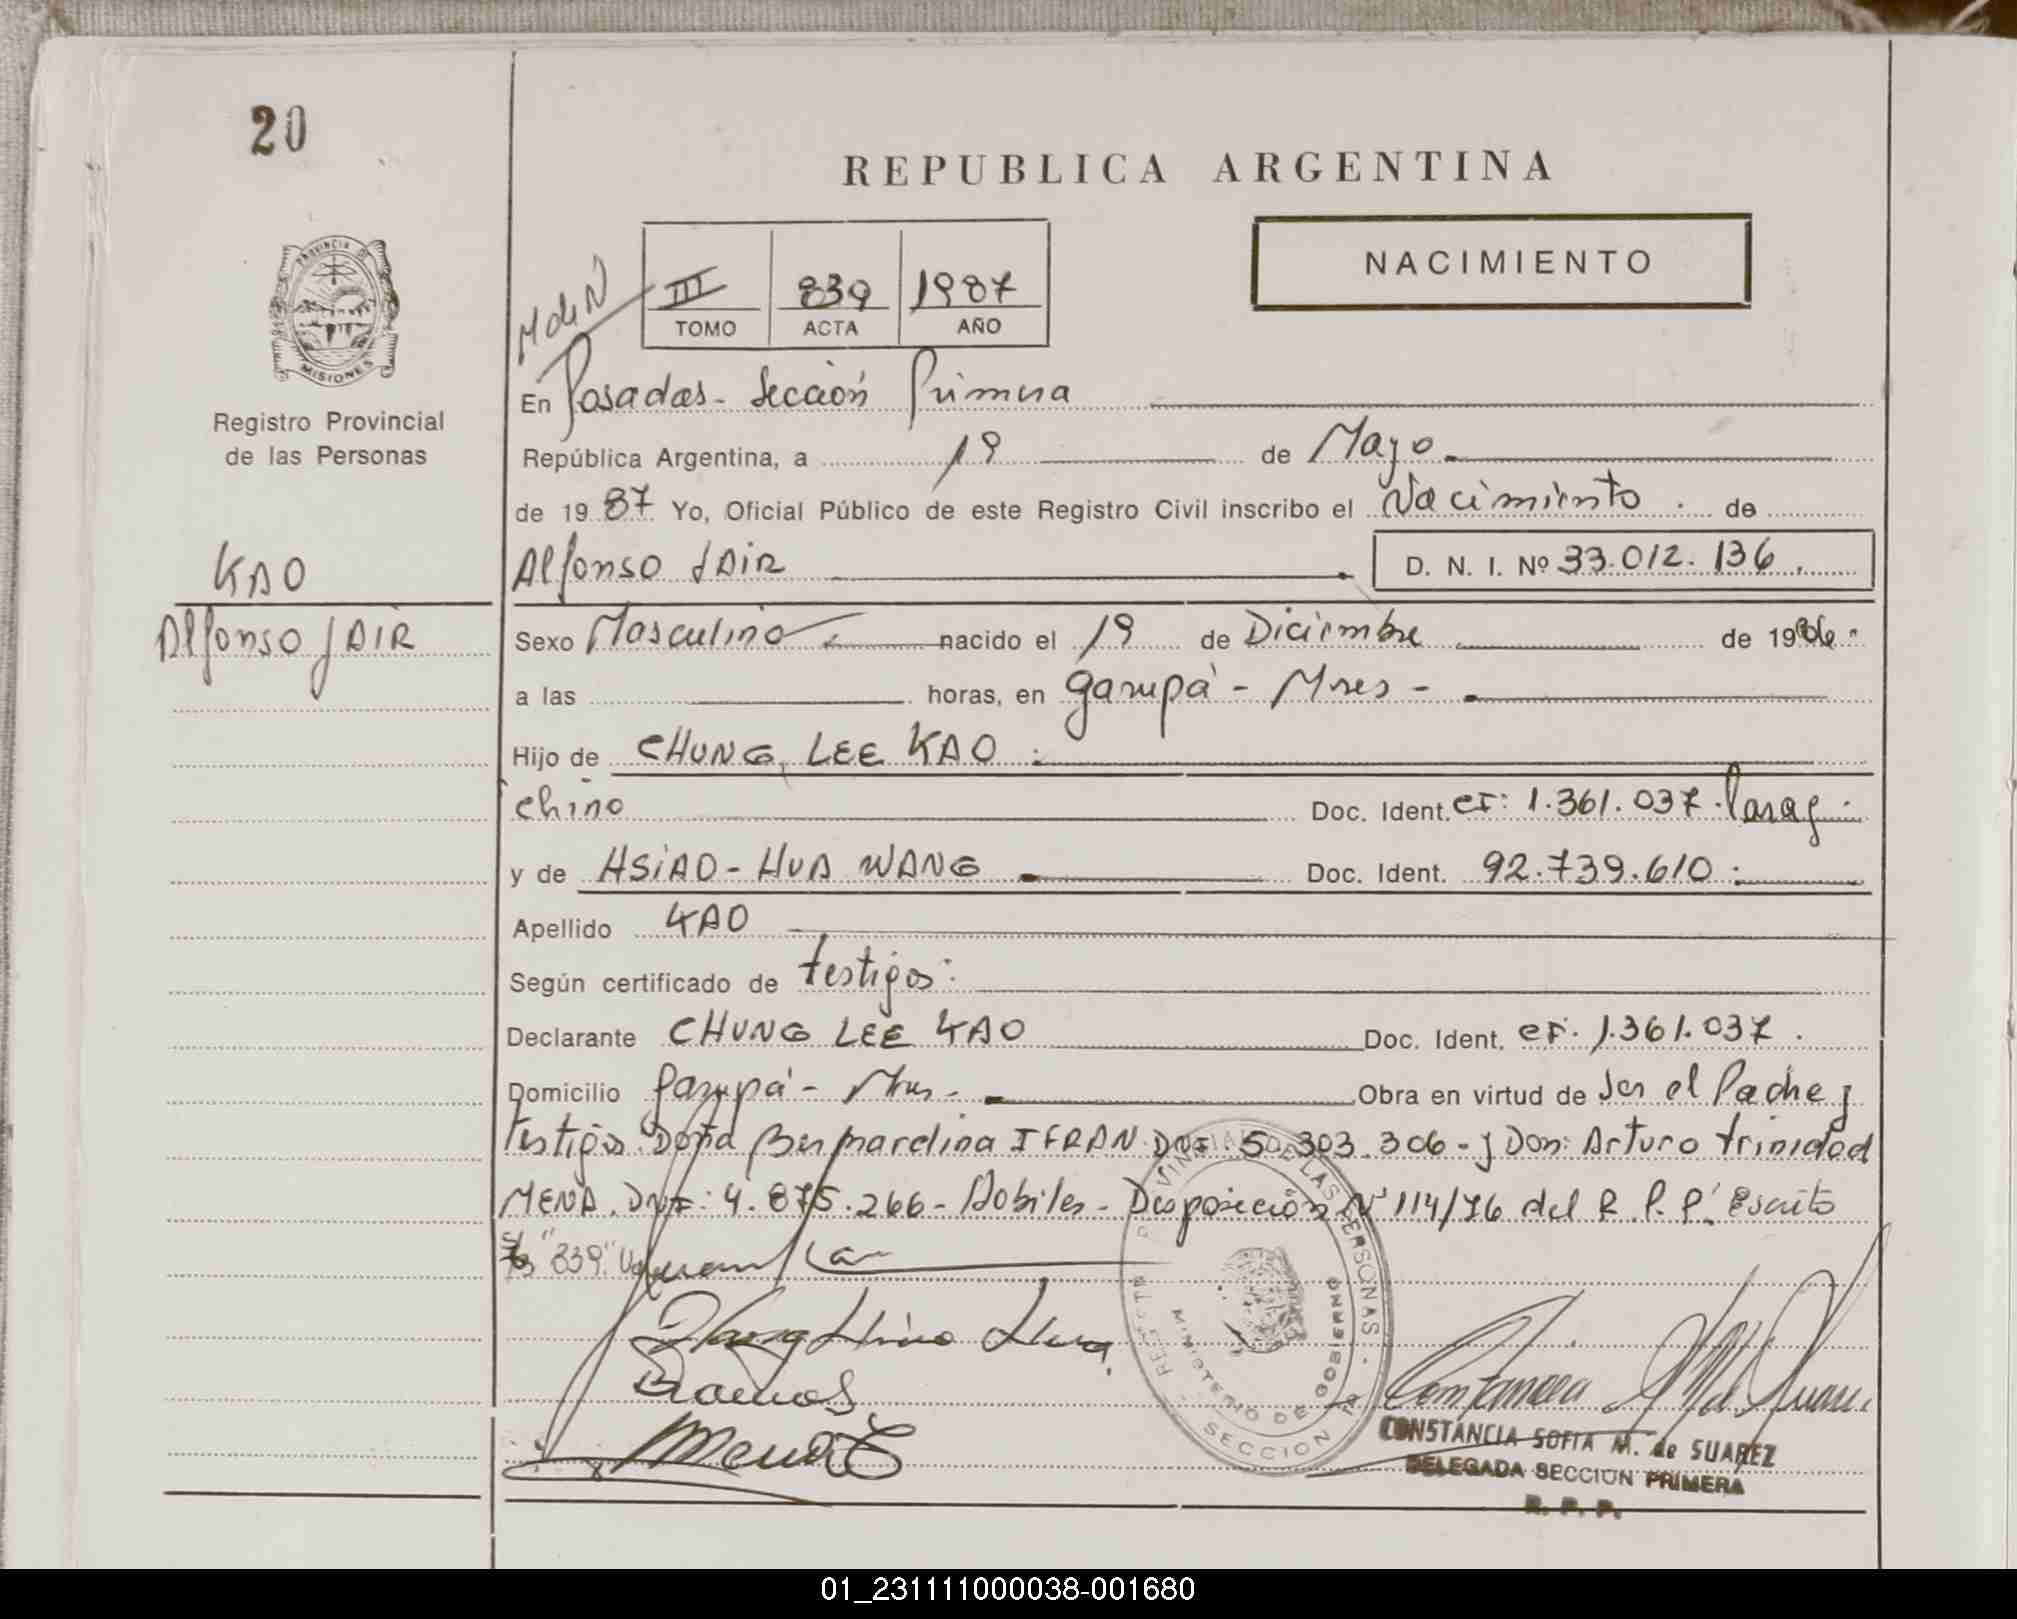 20
REPUBLICA ARGENTINA
NACIMIENTO
III 839 1987
TOMO ACTA AÑO
PROVINCIA DE
MISIONES
Registro Provincial
de las Personas
KAO
Alfonso JAIR
En Posadas - Sección Primera
República Argentina, a 19 de Mayo
de 1987 Yo, Oficial Público de este Registro Civil inscribo el Nacimiento de
Alfonso JAIR D. N. I. Nº 33.012.136
Sexo Masculino nacido el 19 de Diciembre de 1986
a las horas, en Garupá - Mnes -
Hijo de CHUNG, LEE KAO
chino Doc. Ident. CI: 1.361.037. Parag
y de HSIAO - HUA WANG Doc. Ident. 92.739.610
Apellido KAO
Según certificado de testigos:
Declarante CHUNG LEE KAO Doc. Ident. CI. 1.361.037.
Domicilio Garupá - Mnes - Obra en virtud de Ser el Padre y
testigos Doña Bernardina IFRAN DNI. 5.303.306 - y Don: Arturo trinidad
MENA. DNI: 4.875.266 - Hábiles - Disposición Nº 114/76 del R.P.P. Escrito
s/b "839"
MINISTERIO DE GOBIERNO
SECCION 1a
CONSTANCIA SOFIA M. de SUAREZ
DELEGADA SECCION PRIMERA
R. P. P.
01_231111000038-001680